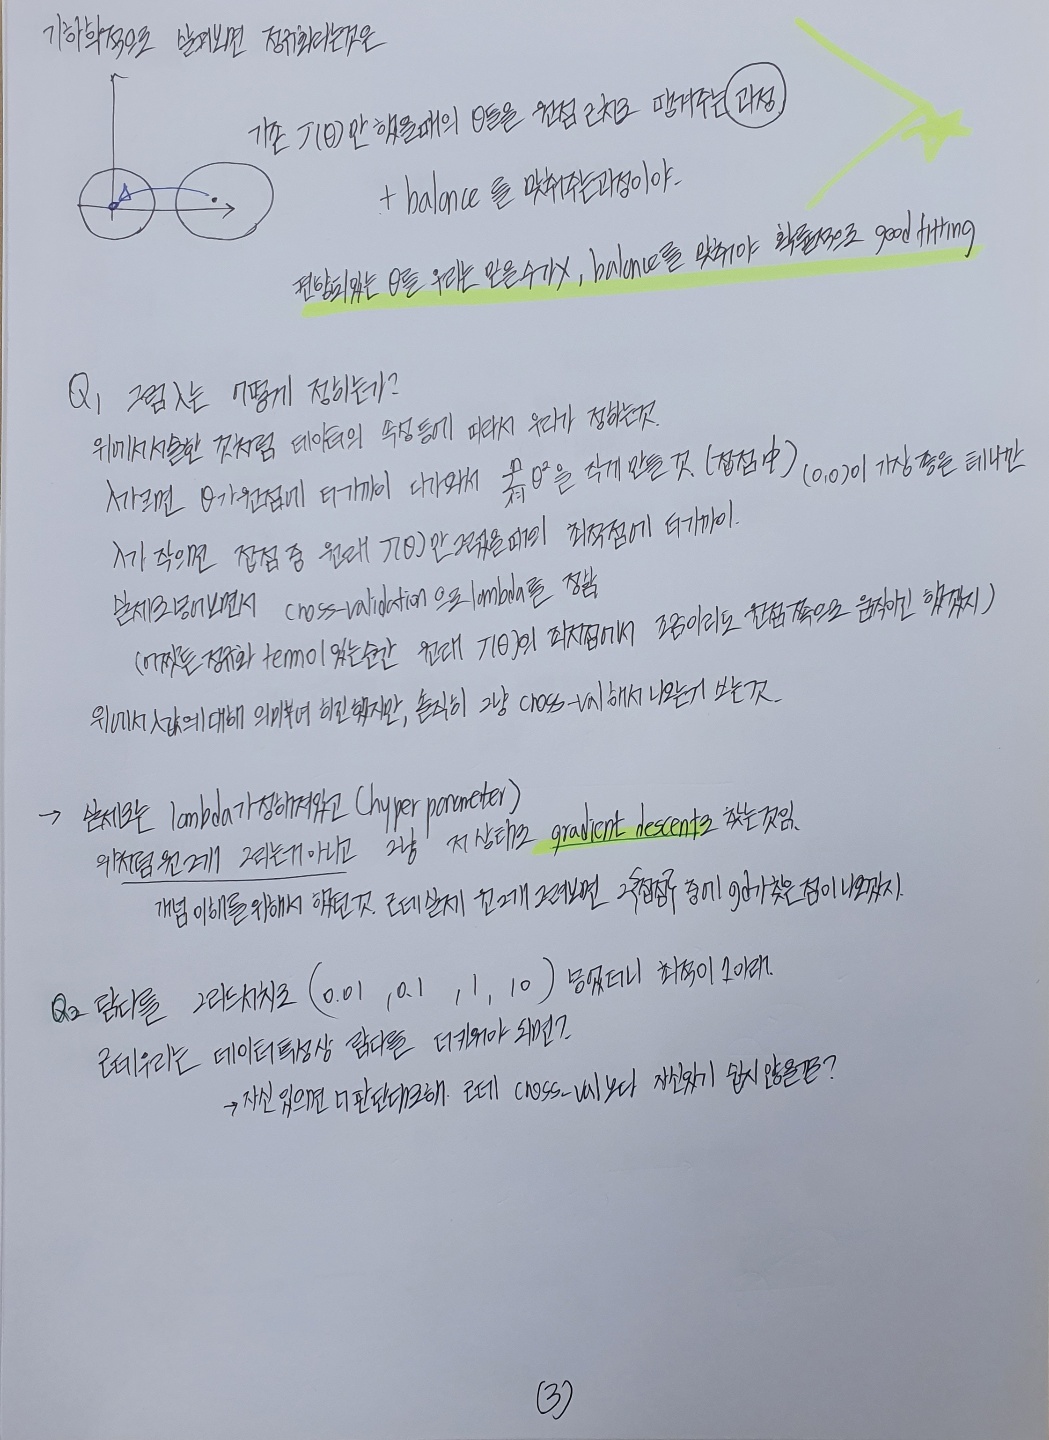 기하학적으로 살펴보면 정규화라는것은
기존 J(θ)만 했을때의 θ들을 원점 근처로 땡겨주는 과정
+ balance 를 맞춰주는과정이야.
편향되있는 θ를 우리는 믿을수가X, balance를 맞춰야 확률적으로 good fitting
Q1 그럼 λ는 어떻게 정하는가?
위에서 서술한 것처럼 데이터의 속성 등에 따라서 우리가 정하는것.
λ가 크면 θ가 원점에 더가까이 다가와서 Σθ²을 작게 만든 것 (접점中) (0,0)이 가장 좋은 테니깐
λ가 작으면 접점 중 원래 J(θ)만 그렸을때의 최적점에 더가까이.
실제로 넣어보면서 cross-validation 으로 lambda를 정함
(어쨌든 정규화 term이 있는순간 원래 J(θ)의 최저점에서 조금이라도 원점쪽으로 움직이긴 했겠지)
위에서 λ값에 대해 의미부여 하긴했지만, 솔직히 그냥 cross-val해서 나오는거 보는것.
→ 실제로는 lambda가 정해져있고 (hyper parameter)
위처럼 원2개 그리는게 아니고 그냥 저 상태로 gradient descent로 찾는것임.
개념 이해를 위해서 했던것. 근데 실제 원2개 그려보면 그 접점 중에 gd가 찾은 점이 나오겠지.
Q2 람다를 그리드서치로 (0.01 , 0.1 , 1, 10) 넣었더니 최적이 1이래.
근데 우리는 데이터 특성상 람다를 더키워야 되면?
→ 자신 있으면 니 판단대로해. 근데 cross-val보다 자신있기 쉽지 않을껄?
(3)